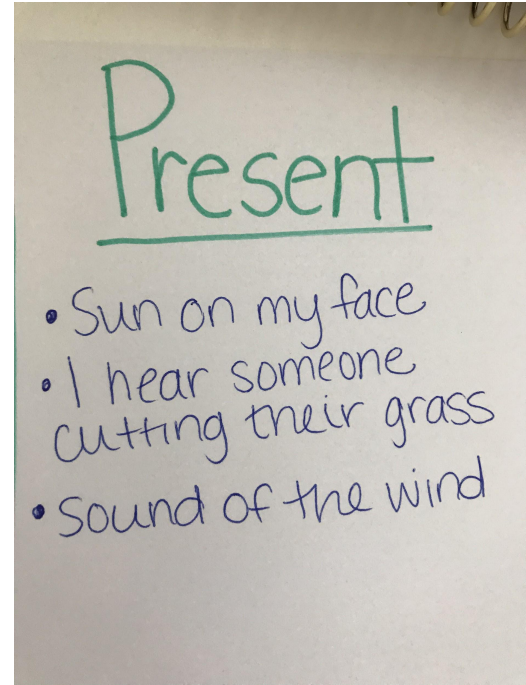 Present
• Sun on my face
• I hear someone
cutting their grass
• Sound of the wind